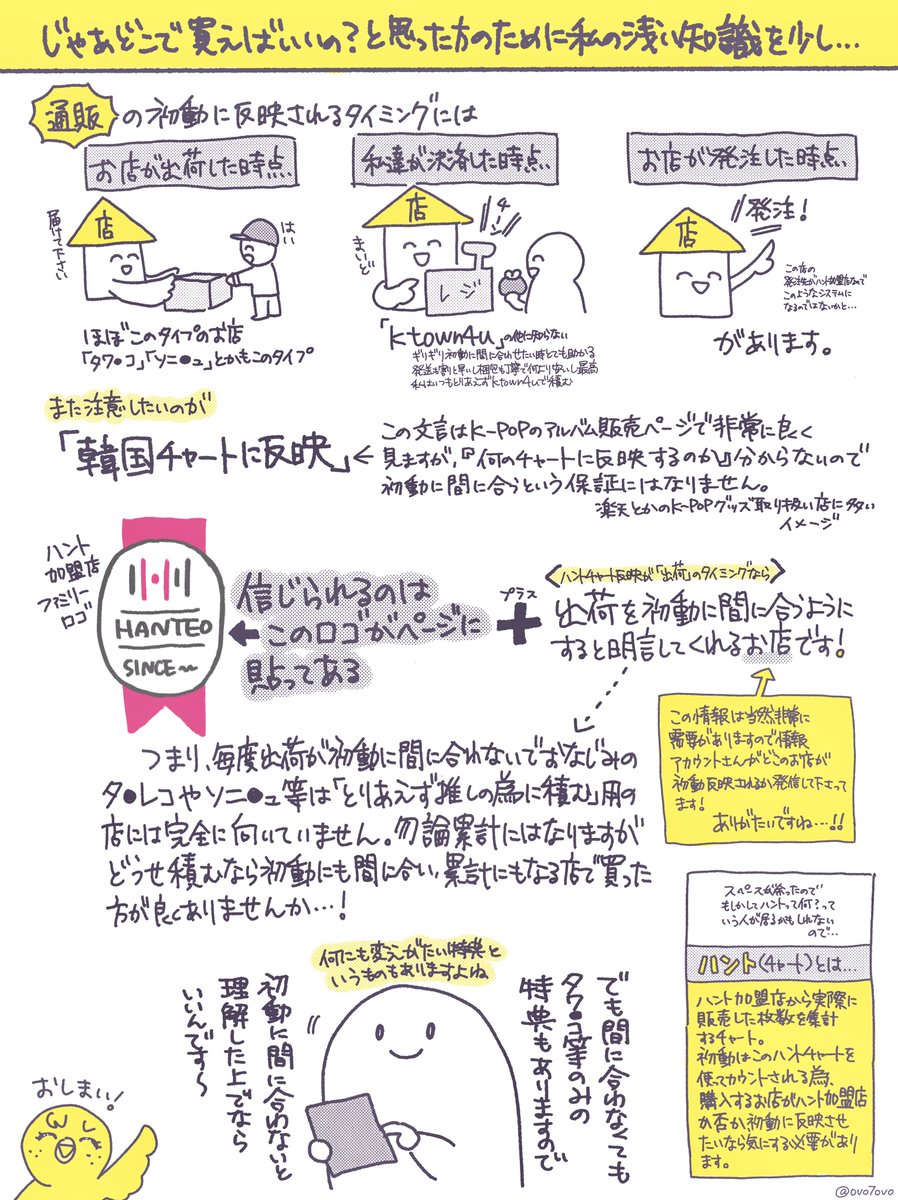 じゃあどこで買えばいいの?と思った方のために私の浅い知識を少し...
通販の初動に反映されるタイミングには
お店が出荷した時点、
店
届けて下さい
はい
ほぼこのタイプのお店
「タワ●コ」「ソニ●ュ」とかもこのタイプ
私達が決済した時点、
店
まいど
チーン
レジ
「ktown4u」の他に知らない
ギリギリ初動に間に合わせたい時とても助かる
発送も割と早いし梱包も丁寧で何より安いし最高
私はいつもとりあえずktown4uで積む
お店が発注した時点、
店
発注!
この店の
発注先がハント加盟店なので
このようなシステムに
なるのではないかと...
があります。
また注意したいのが
「韓国チャートに反映」←
この文言はK-POPのアルバム販売ページで非常に良く
見ますが、『何のチャートに反映するのか』分からないので
初動に間に合うという保証にはなりません。
楽天とかのK-POPグッズ取り扱い店に多い
イメージ
ハント
加盟店
ファミリー
ロゴ
HANTEO
SINCE~
信じられるのは
←このロゴがページに
貼ってある
プラス
+
ハントチャート反映が「出荷」のタイミングなら
出荷を初動に間に合うように
すると明言してくれるお店です!
この情報は当然非常に
需要がありますので情報
アカウントさんがどこのお店が
初動反映されるか発信して下さって
ます!
ありがたいですね...!!
つまり、毎度出荷が初動に間に合わないでおなじみの
タ●レコやソニ●ュ等は「とりあえず推しの為に積む」用の
店には完全に向いていません。勿論累計にはなりますが
どうせ積むなら初動にも間に合い、累計にもなる店で買った
方が良くありませんか...!
スペースが余ったので
もしかしてハントって何?って
いう人が居るかもしれない
ので...
ハント(チャート)とは...
ハント加盟店から実際に
販売した枚数を集計
するチャート。
初動はこのハントチャートを
使ってカウントされる為、
購入するお店がハント加盟店
か否か、初動に反映させ
たいなら気にする必要があり
ます。
何にも変えがたい特典と
いうものもありますよね
でも間に合わなくても
タワ●コ等のみの
特典もありますので
初動に間に合わないと
理解した上でなら
いいんです〜
おしまい!
@ovo7ovo